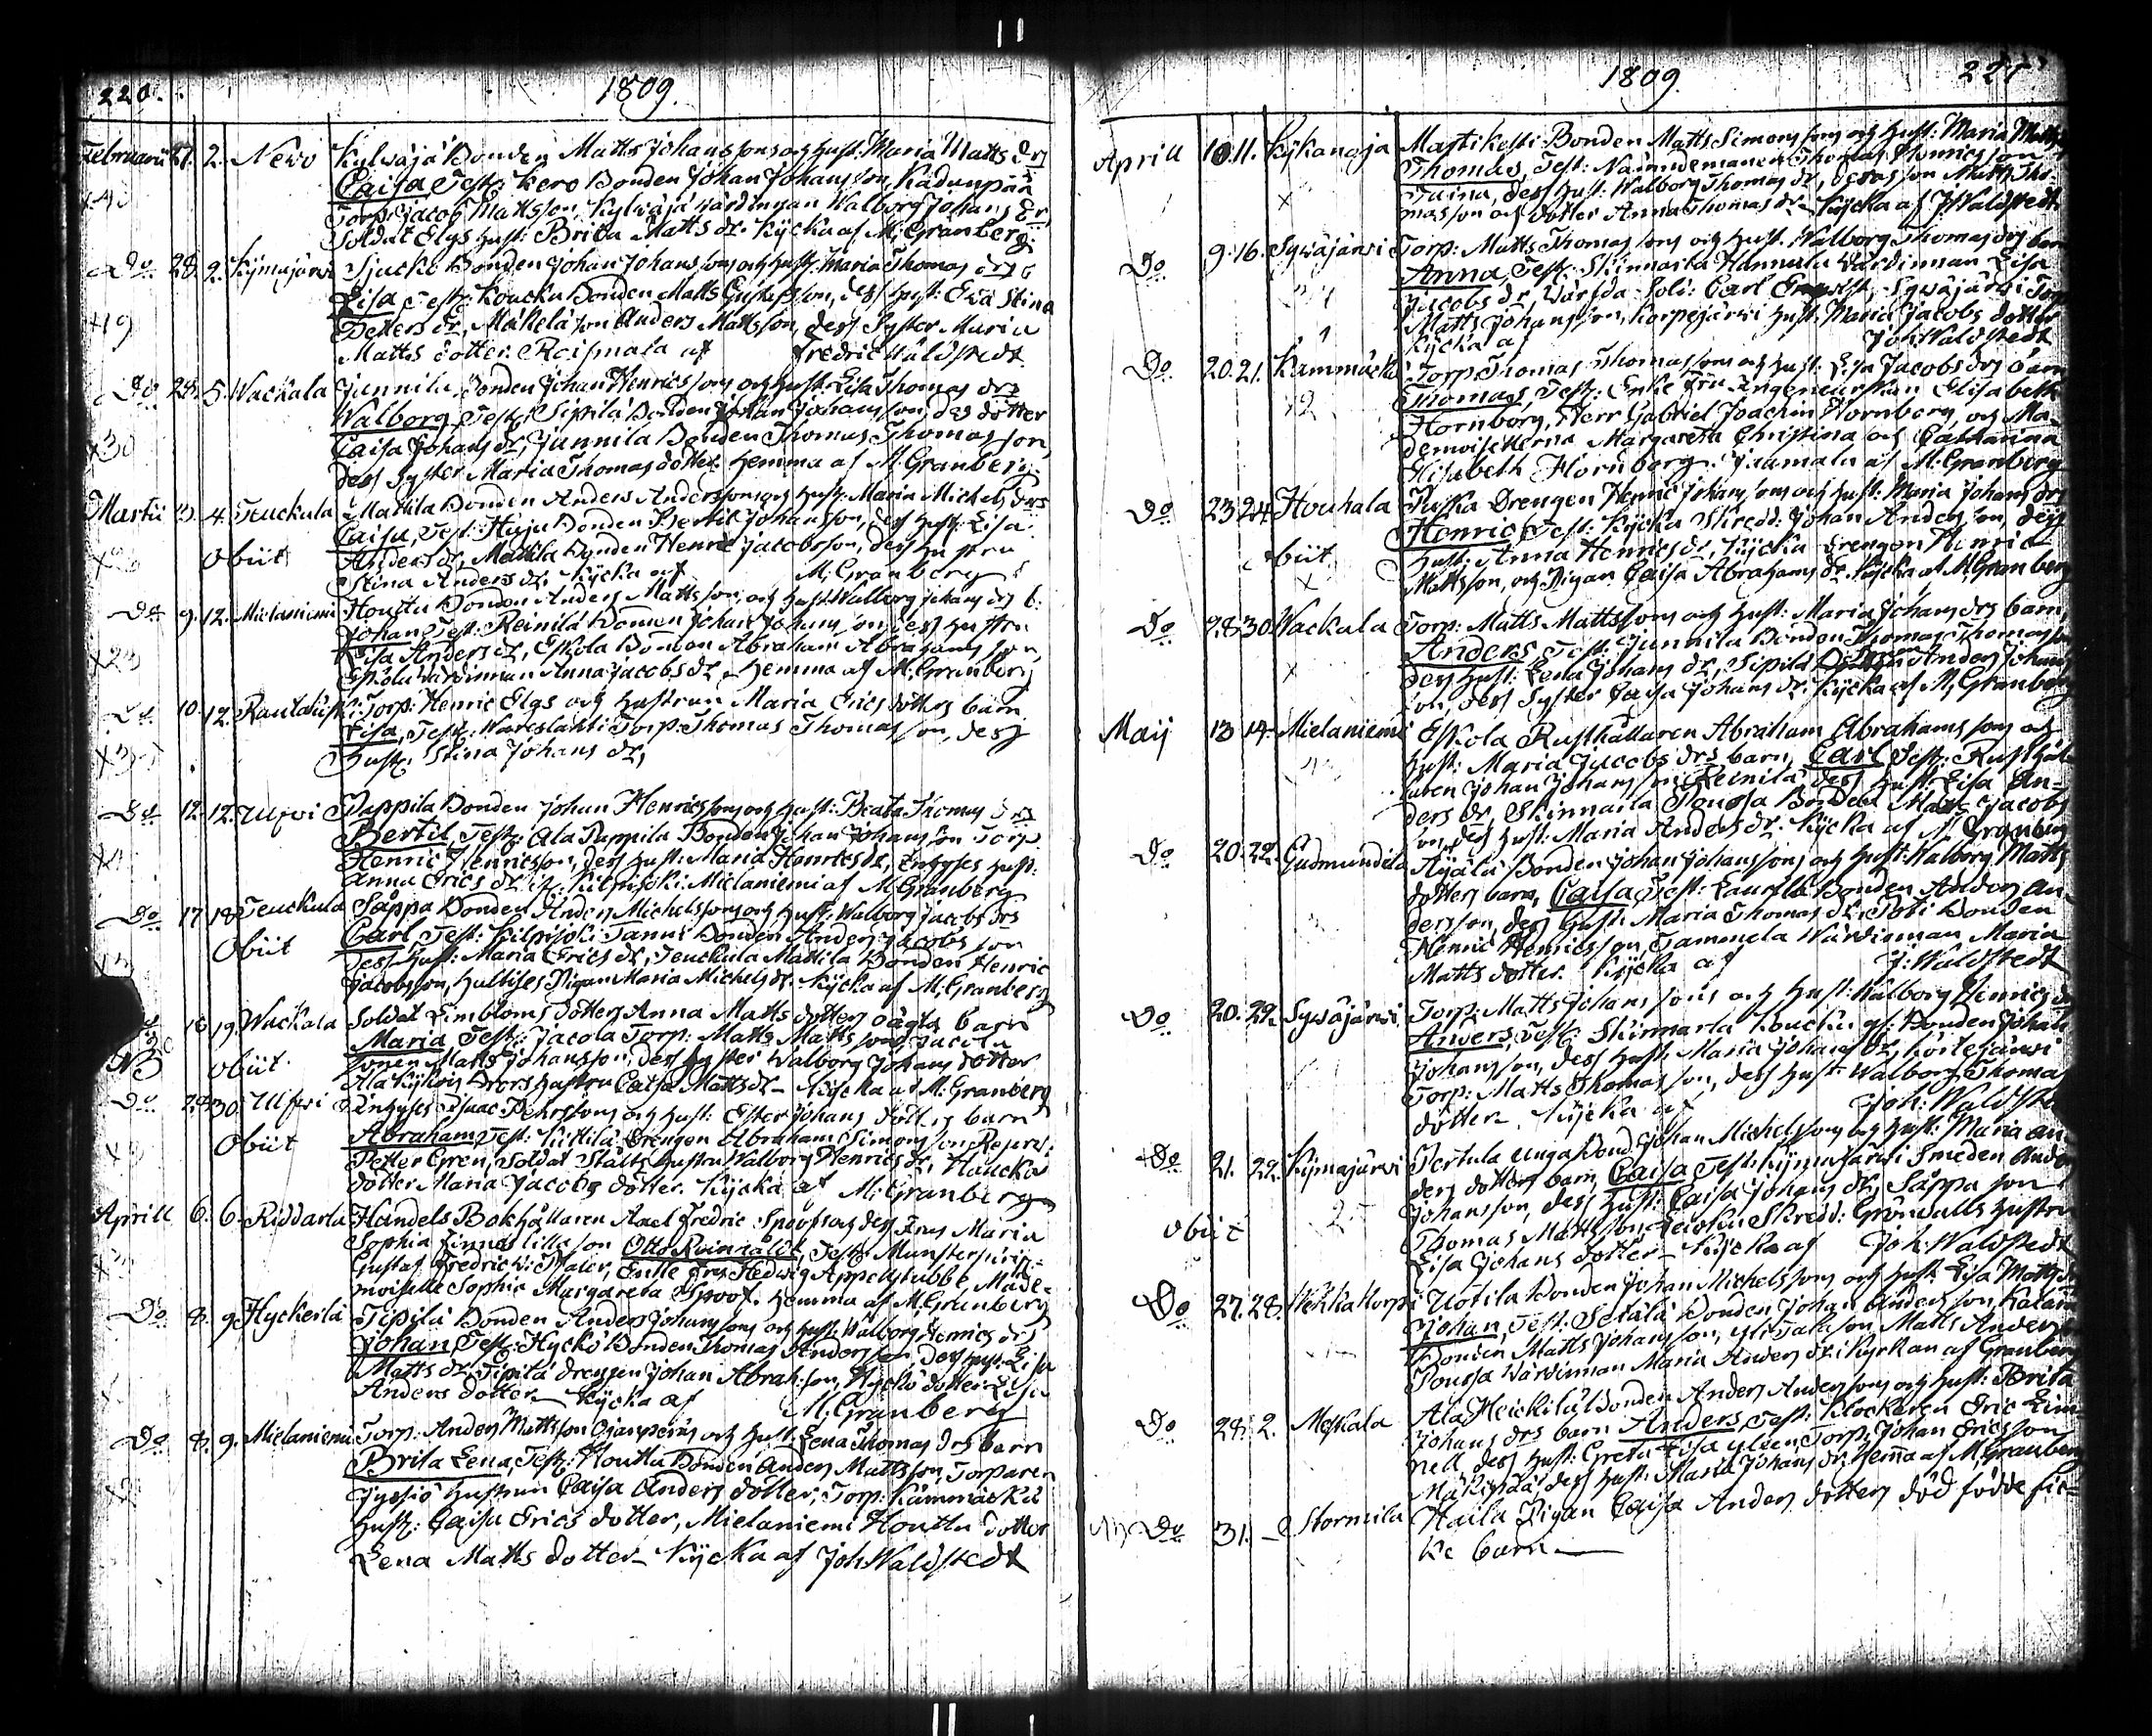 220. 1809.
Februarii 27. 2. Newo Kylwäjä Bonden Matts Johanssons och Hust: Maria Matts drs
Caisa Test: Kero Bonden Johan Johansson, Kadunpää
Torp: Jacob Mattsson, Kylwäjä wärdinnan Walborg Johans dr
Soldat Elgs Hust: Brita Matts dr. Kÿcka af M: Granberg
Do 28. 2. Kÿmajärwi Bonden Johan Johanssons och Hust: Maria Thomas drs
Lisa Test: Koucku Bonden Matts Gustafsson, dess Hust: Ewa Stina
Petters dr, Mäkelä son Anders Mattsson, dess Syster Maria
Matts dotter. Roismala af Fredric Waldstedt
Do 28. 5. Wackala Junnila Bonden Johan Henricssons och Hust: Lisa Thomas drs
Walborg Test: Sipilä Bonden Johan Johansson, des dotter
Caisa Johans dr, Junnila Bonden Thomas Thomasson,
dess Syster Maria Thomas dotter. Hemma af M: Granberg
Martii 3. 4. Teuckula Mattila Bonden Anders Anderssons och Hust: Maria Michels drs
Caisa, Test: Haju Bonden Bertil Johansson, dess Hust: Lisa
obiit Anders dr, Mattila Bonden Henric Jacobsson, dess Hustru
Stina Anders dr. Kÿcka af M: Granberg
Do 9. 12. Mielaniemi Houttu Bonden Anders Mattssons och Hust: Walborg Johans drs b:
Johan Test: Reinilä Bonden Johan Johansson, dess Hustru
Lisa Anders dr, Eskola Bonden Abraham Abrahamsson,
Eskola wärdinnan Anna Jacobs dr. Hemma af M: Granberg
Do 10. 12. Torp: Henric Elgs och Hustrun Maria Erics dotters barn
Lisa, Test: Wareslahti Torp: Thomas Thomasson, dess
Hust: Stina Johans dr,
Do 12. 12. Ulfwi Pappila Bonden Johan Henricssons och Hust: Beata Thomas drs
Bertil, Test: Ala Pappila Bonden Johan Johansson Torp:
Henric Henricsson, dess Hust: Maria Henrics dr, Hust:
Anna Erics dr. Kilpisoki: Mielaniemi af M: Granberg
Do 17. 18. Teuckula Säppä Bonden Anders Michelssons och Hust: Walborg Jacobs drs
Obiit Carl, Test: Kilpijoki Tanni Bonden Anders Jacobsson
dess Hust: Maria Erics dr, Teuckula Mattila Bonden Henric
Jacobsson, Pigan Maria Michels dr. Kÿcka af M: Granberg
18. 19. Wackala Soldat Limbloms dotters Anna Matts dotters oägta barn
NB Maria Test: Jacola Torp: Matts Mattsson, Jacola
obiit. Sonen Matts Johansson, dess Syster Walborg Johans dotter
Hustru Caisa Matts dr. Kÿcka af M: Granberg
Do 30. Ulfwi Isaac Pehrssons och Hust: Ester Johans dotters barn
Obiit Abraham, Test: Kittilä Drengen Abraham Simonsson,
Petter Gren, Soldat Stålts Hustru Walborg Henrics dr, Haucka
dotter Maria Jacobs dotter. Kÿcka af M: Granberg
Aprill 6. 6. Riddarla Handels Bokhållaren Axel Fredric Spoofs och dess Frus Maria
Sophia Finnes lilla son Otto Reinhold, Test: Munsterskrif:
Gustaf Fredric Enke Fru Hedwig Appelstubbe Made-
moiselle Sophia Margareta Spoof. Hemma af M: Granberg
Do 8. 9. Hyckerlä Sipilä Bonden Anders Johanssons och Hust: Walborg Henrics drs
Johan Test: Hyckö Bonden Thomas Andersson, dess Hust: Lisa
Matts dr, Sipilä drengen Johan Abrah:son, Hyckö dotter Lisa
Anders dotter. Kÿcka af M: Granberg
Do 8. 9. Mielaniemi Torp: Anders Mattsson Ojanperäs och Hust: Lena Thomas drs barn
Brita Lena, Test: Houttu Bonden Anders Mattsson, Torparen
Hustrun Caisa Anders dotter, Torp: Kämmäckä
Hust: Caisa Erics dotter, Mielaniemi Houttu dotter
Lena Matts dotter. Kÿcka af Joh: Waldstedt
1809. 221
Aprill 10. 11. Kÿkanoja Martikesti Bonden Matts Simonssons och Hust: Maria Matts
Thomas, Test: Nämndemannen Thomas Henricsson
dess Hust: Walborg Thomas dr, deras son Matts Tho-
masson och dotter Anna Thomas dr. Kÿcka af J: Waldstedt
Do 9. 16. Sywäjärwi Torp: Matts Thomassons och Hust: Walborg Thomas drs barn
Anna, Test: Skinnarla Hannula wärdinnan Lisa
Jacobs dr, Sold: Carl Sywäjärwi Torp:
Matts Johansson, Korpejärwi Hust: Maria Jacobs dotter
Kÿcka af Joh: Waldstedt
Do 20. 21. Kämmäckä Torp: Thomas Thomassons och Hust: Lisa Jacobs drs barn
Thomas Test: Enke Fru Ingeneurskan Elisabeth
Hornborg, Herr Gabriel Joachim Hornborg, och Ma-
demoisellerna Margareta Christina och Catharina
Elisabeth Hornborg. Jaamala af M: Granberg
Do 23. 24. Houhala Puska Drengen Henric Johanssons och Hust: Maria Johans drs
Henric Test: Kÿcka Skredd: Johan Andersson, dess
obiit Hust: Anna Henrics dr, Kÿcka drengen Henric
Mattsson, och Pigan Caisa Abrahams dr. Kÿcka af M: Granberg
Do 28. 30. Wackala Torp: Matts Mattssons och Hust: Maria Johans drs barn
Anders Test: Junnila Bonden Thomas Thomasson
dess Hust: Lena Johans dr, Sipilä Anders Johans
son, dess Syster Caisa Johans dr. Kÿcka af M: Granberg
Maij 13. 14. Mielaniemi Eskola Rusthållaren Abraham Abrahamssons och
Hust: Maria Jacobs drs barn, Carl Test: Rusthål-
laren Johan Johansson Reinilä dess Hust: Lisa An-
ders dr, Skinnarla Poussa Bonden Matts Jacobs
son, dess Hust: Maria Anders dr. Kÿcka af M: Granberg
Do 20. 22. Gudmundila Äÿälä Bonden Johan Johanssons och Hust: Walborg Matts
dotters barn, Caisa Test: Laurila Bonden Anders An-
dersson, dess Hust: Maria Thomas dr, Poti Bonden
Henric Henricsson, Tammela wärdinnan Maria
Matts dotter. Kÿcka af J: Waldstedt
Do 20. 22. Sywäjärwi Torp: Matts Johanssons och Hust: Walborg Henrics drs
Anders, Test: Skinnarla Koucku gl: Bonden Johan
Johansson, dess Hust: Maria Johans dr, Körtejärwi
Torp: Matts Thomasson, dess Hust: Walborg Thomas
dotter. Kÿcka af Joh: Waldste
Do 21. 22. Kÿmajärwi Pertula unga Bond: Johan Michelssons och Hust: Maria An-
ders dotters barn, Caisa Test: Kÿmajärwi Smeden Anders
Johansson, dess Hust: Caisa Johans dr, Säppä son
obiit Thomas Mattsson, Skredd: Gröndalls Hustru
Lisa Johans dotter. Kÿcka af Joh: Waldstedt
Do 27. 28. Uotila Bonden Johan Michelssons och Hust: Lisa Matts dr
Johan, Test: Setälä Bonden Johan Andersson,
Bonden Matts Johansson, Matts Anders
Poussa wärdinnan Maria Anders dr. i Kyrkan af Granberg
Do 28. 2. Meskala Ala Heickilä Bonden Anders Anderssons och Hust: Brita
Johans drs barn Anders, Test: Klockaren Eric Lim-
nell dess Hust: Greta Lisa Torp: Johan Ericsson
Mäkipää, dess Hust: Maria Johans dr. Hemma af M: Granberg
Do 31. Stormila Haila Pigan Caisa Anders dotters död födde flic-
ke barn.